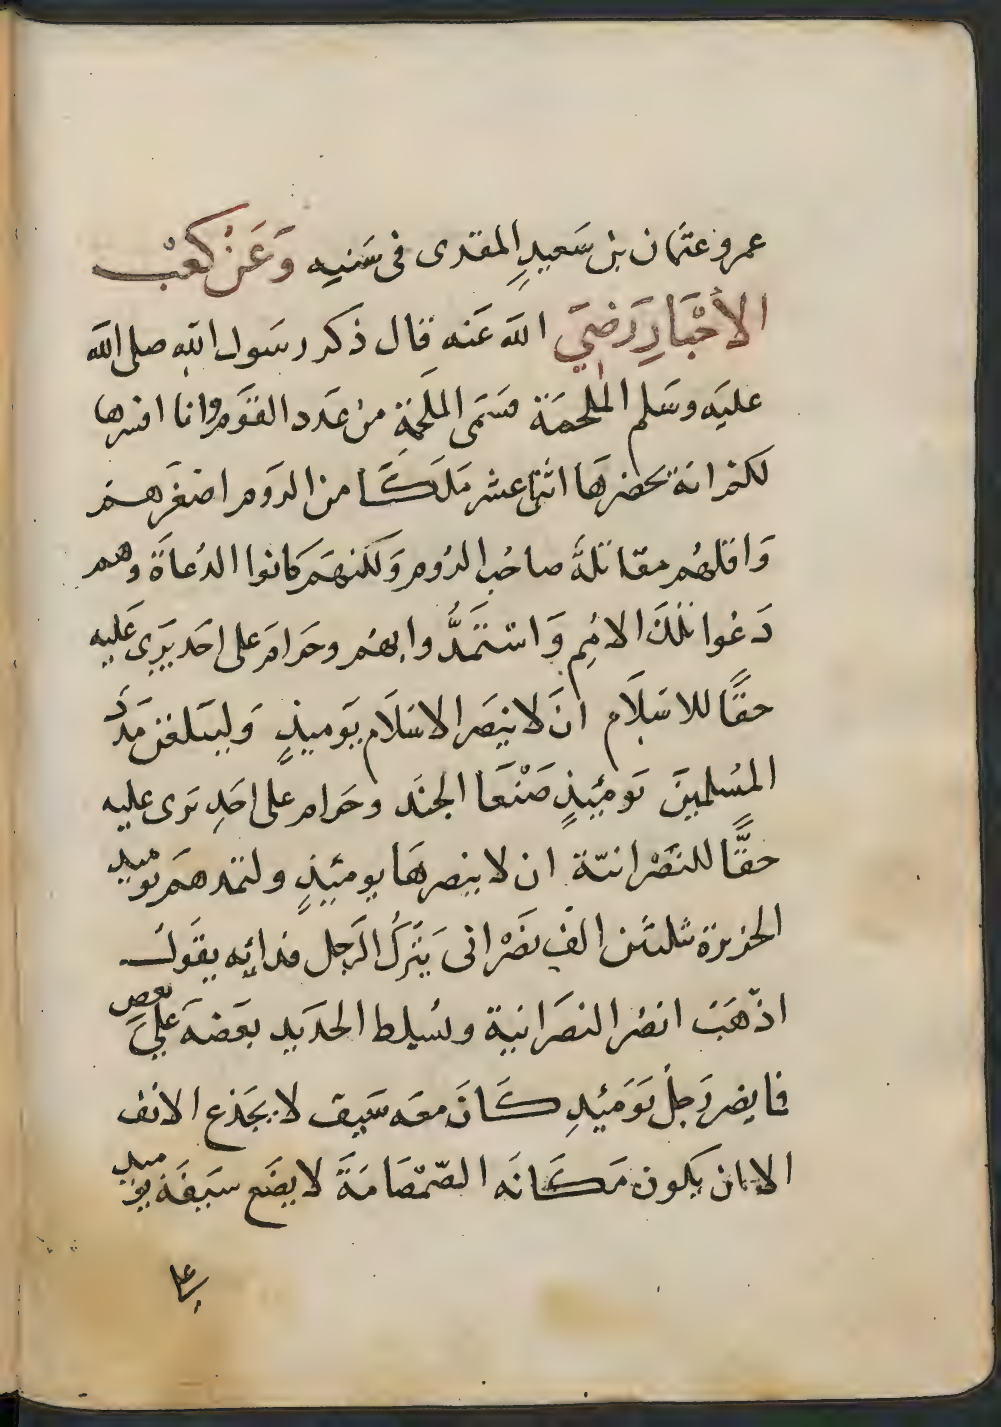 عمرو عثمان بن سَعيدٍ المقدى فى سَننِه وَعَنْ كعْب
الأحْبَارِ رَضِيَ الله عَنه قال ذكر رسَول الله صلى الله
عليَه وسَلم الملحمَة فسَمَى الملحَمَةِ من عَدد القوَم وانا افسرها
لكم انهَ يحَضرهَا اثنى عشر مَلكًا من الروَم اصغَرهم
وَاقلهُم مقاتلة صاحُب الرُوم وَلكنهَم كانوا الدُعاَة وهم
دَعوا تلكَ الامُمِ وَاسْتَمَدُّوا بهمُ وحَرامَ على احَد يرَى عَليه
حقًّا للاسَلَام انَ لا ينصَر الاسَلَام يَوميذٍ وَليبَلغن مَدَدُ
المسُلمينَ يَومئيذٍ صَنْعَا الجندَ وحَرام على احَدٍ يرَى عليه
حقًّا للنصْرانيّة ان لا ينصرهَا يومئيذٍ ولتمدهمَ يوميد
الجزيرة بثلثين الف نصَرْانى يَتركُ الرَجل فدائِه يقوَلُ
اذّهَبَ انصُر النصَرانيةَ ويسُلط الحدَيد بعَضهَ عَلىَ بعض
فما يضر رَجلُ يَوَمئيدِ كَانَ معَه سَيف لا يجَذع الانف
الا ان يكون مَكَانَه الصّمْصَامَةَ لا يضَع سَيفَه يوميد
على